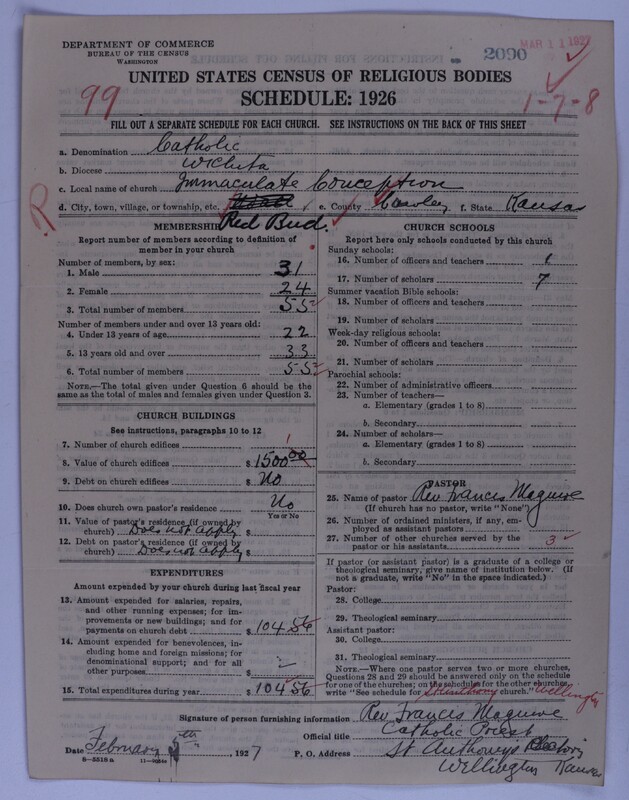 DEPARTMENT OF COMMERCE
BUREAU OF THE CENSUS
WASHINGTON
2090
MAR 11 1927
UNITED STATES CENSUS OF RELIGIOUS BODIES
99
SCHEDULE: 1926
1-7-8
FILL OUT A SEPARATE SCHEDULE FOR EACH CHURCH. SEE INSTRUCTIONS ON THE BACK OF THIS SHEET
a. Denomination Catholic
b. Diocese Wichita
c. Local name of church Immaculate Conception
R
d. City, town, village, or township, etc. e. County Cowley f. State Kansas
Red Bud.
MEMBERSHIP
Report number of members according to definition of
member in your church
Number of members, by sex:
1. Male 31
2. Female 24
3. Total number of members 55
Number of members under and over 13 years old:
4. Under 13 years of age 22
5. 13 years old and over 33
6. Total number of members 55
NOTE.—The total given under Question 6 should be
same as the total of males and females given under Question 3.
CHURCH BUILDINGS
See instructions, paragraphs 10 to 12
7. Number of church edifices 1
8. Value of church edifices $ 1500 00
9. Debt on church edifices $ No
10. Does church own pastor's residence No
Yes or No
11. Value of pastor's residence (if owned by
church) Does not apply $
12. Debt on pastor's residence (if owned by
church) Does not apply $
EXPENDITURES
Amount expended by your church during last fiscal year
13. Amount expended for salaries, repairs,
and other running expenses; for im-
provements or new buildings; and for
payments on church debt $ 104 56
14. Amount expended for benevolences, in-
cluding home and foreign missions; for
denominational support; and for all
other purposes $
15. Total expenditures during year $ 104 56
CHURCH SCHOOLS
Report here only schools conducted by this church
Sunday schools:
16. Number of officers and teachers 1
17. Number of scholars 7
Summer vacation Bible schools:
18. Number of officers and teachers
19. Number of scholars
Week-day religious schools:
20. Number of officers and teachers
21. Number of scholars
Parochial schools:
22. Number of administrative officers
23. Number of teachers—
a. Elementary (grades 1 to 8)
b. Secondary
24. Number of scholars—
a. Elementary (grades 1 to 8)
b. Secondary
PASTOR
25. Name of pastor Rev Francis Maguire
(If church has no pastor, write "None")
26. Number of ordained ministers, if any, em-
ployed as assistant pastors
27. Number of other churches served by the
pastor or his assistants 3
If pastor (or assistant pastor) is a graduate of a college or
theological seminary, give name of institution below. (If
not a graduate, write "No" in the space indicated.)
Pastor:
28. College
29. Theological seminary
Assistant pastor:
30. College
31. Theological seminary
NOTE.—Where one pastor serves two or more churches,
Questions 28 and 29 should be answered only on the schedule
for one of the churches; on the schedule for the other churches,
write "See schedule for St Anthony church." Wellington
Signature of person furnishing information Rev. Francis Maguire
Official title Catholic Priest
Date February 5th 1927 P. O. Address St Anthony's
8-5318 a
Wellington Kansas